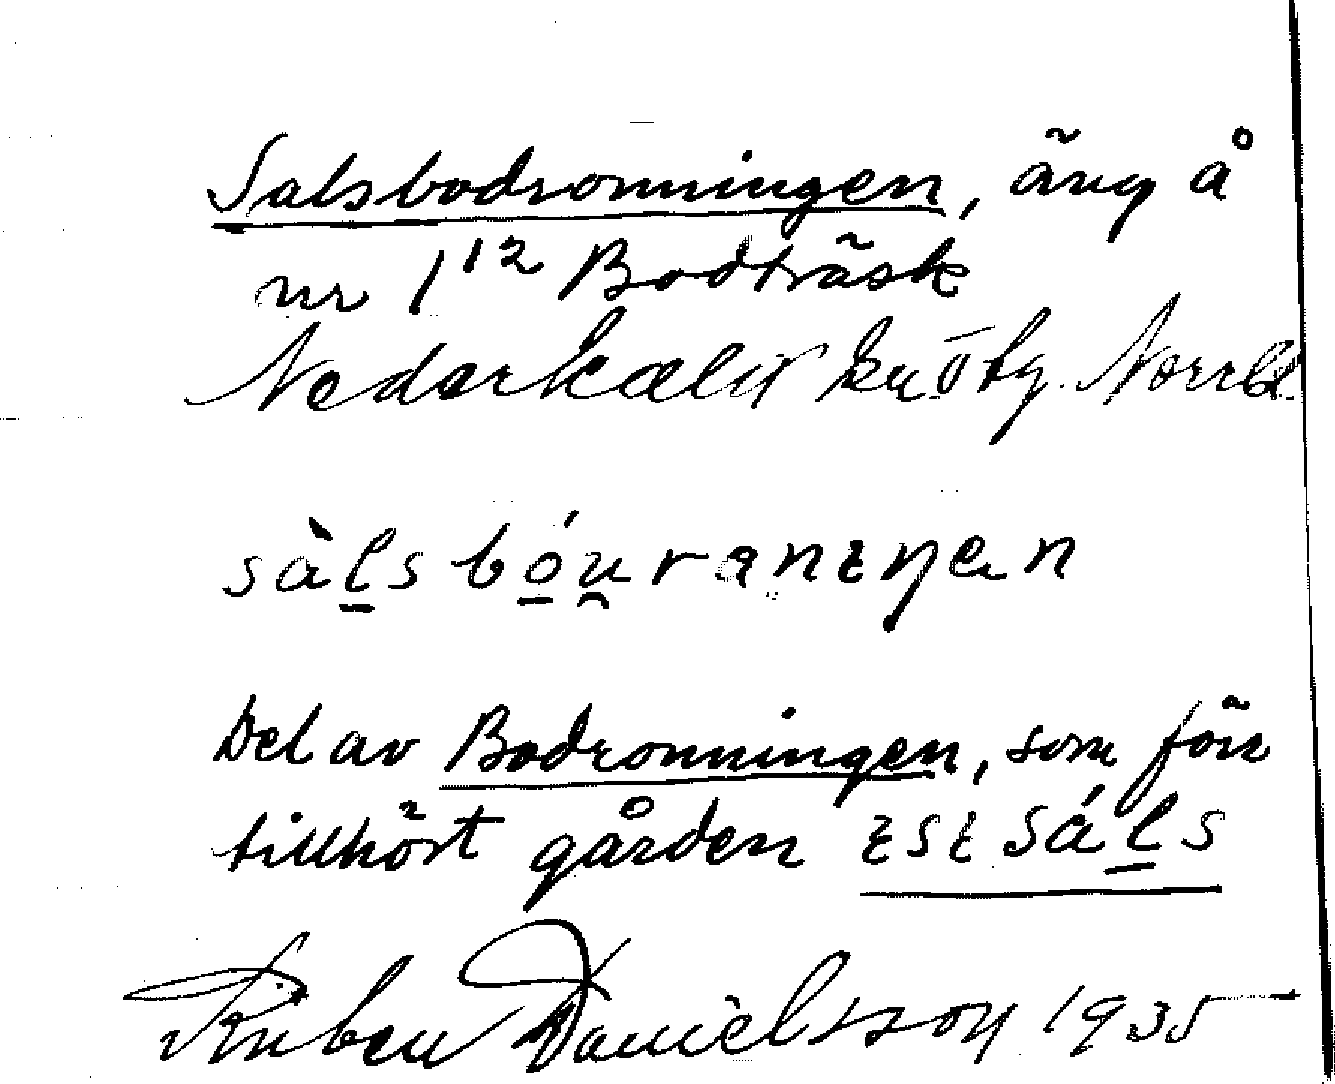 Salsbodronningen, äng å
nr 1¹² Bodträsk
Nederkalix kn öbg. Norrb.
sàl̲sbó̲u̯ranıŋen
Del av Bodronningen, som förr
tillhört gården ısısál̲s
Ruben Danielsson 1935